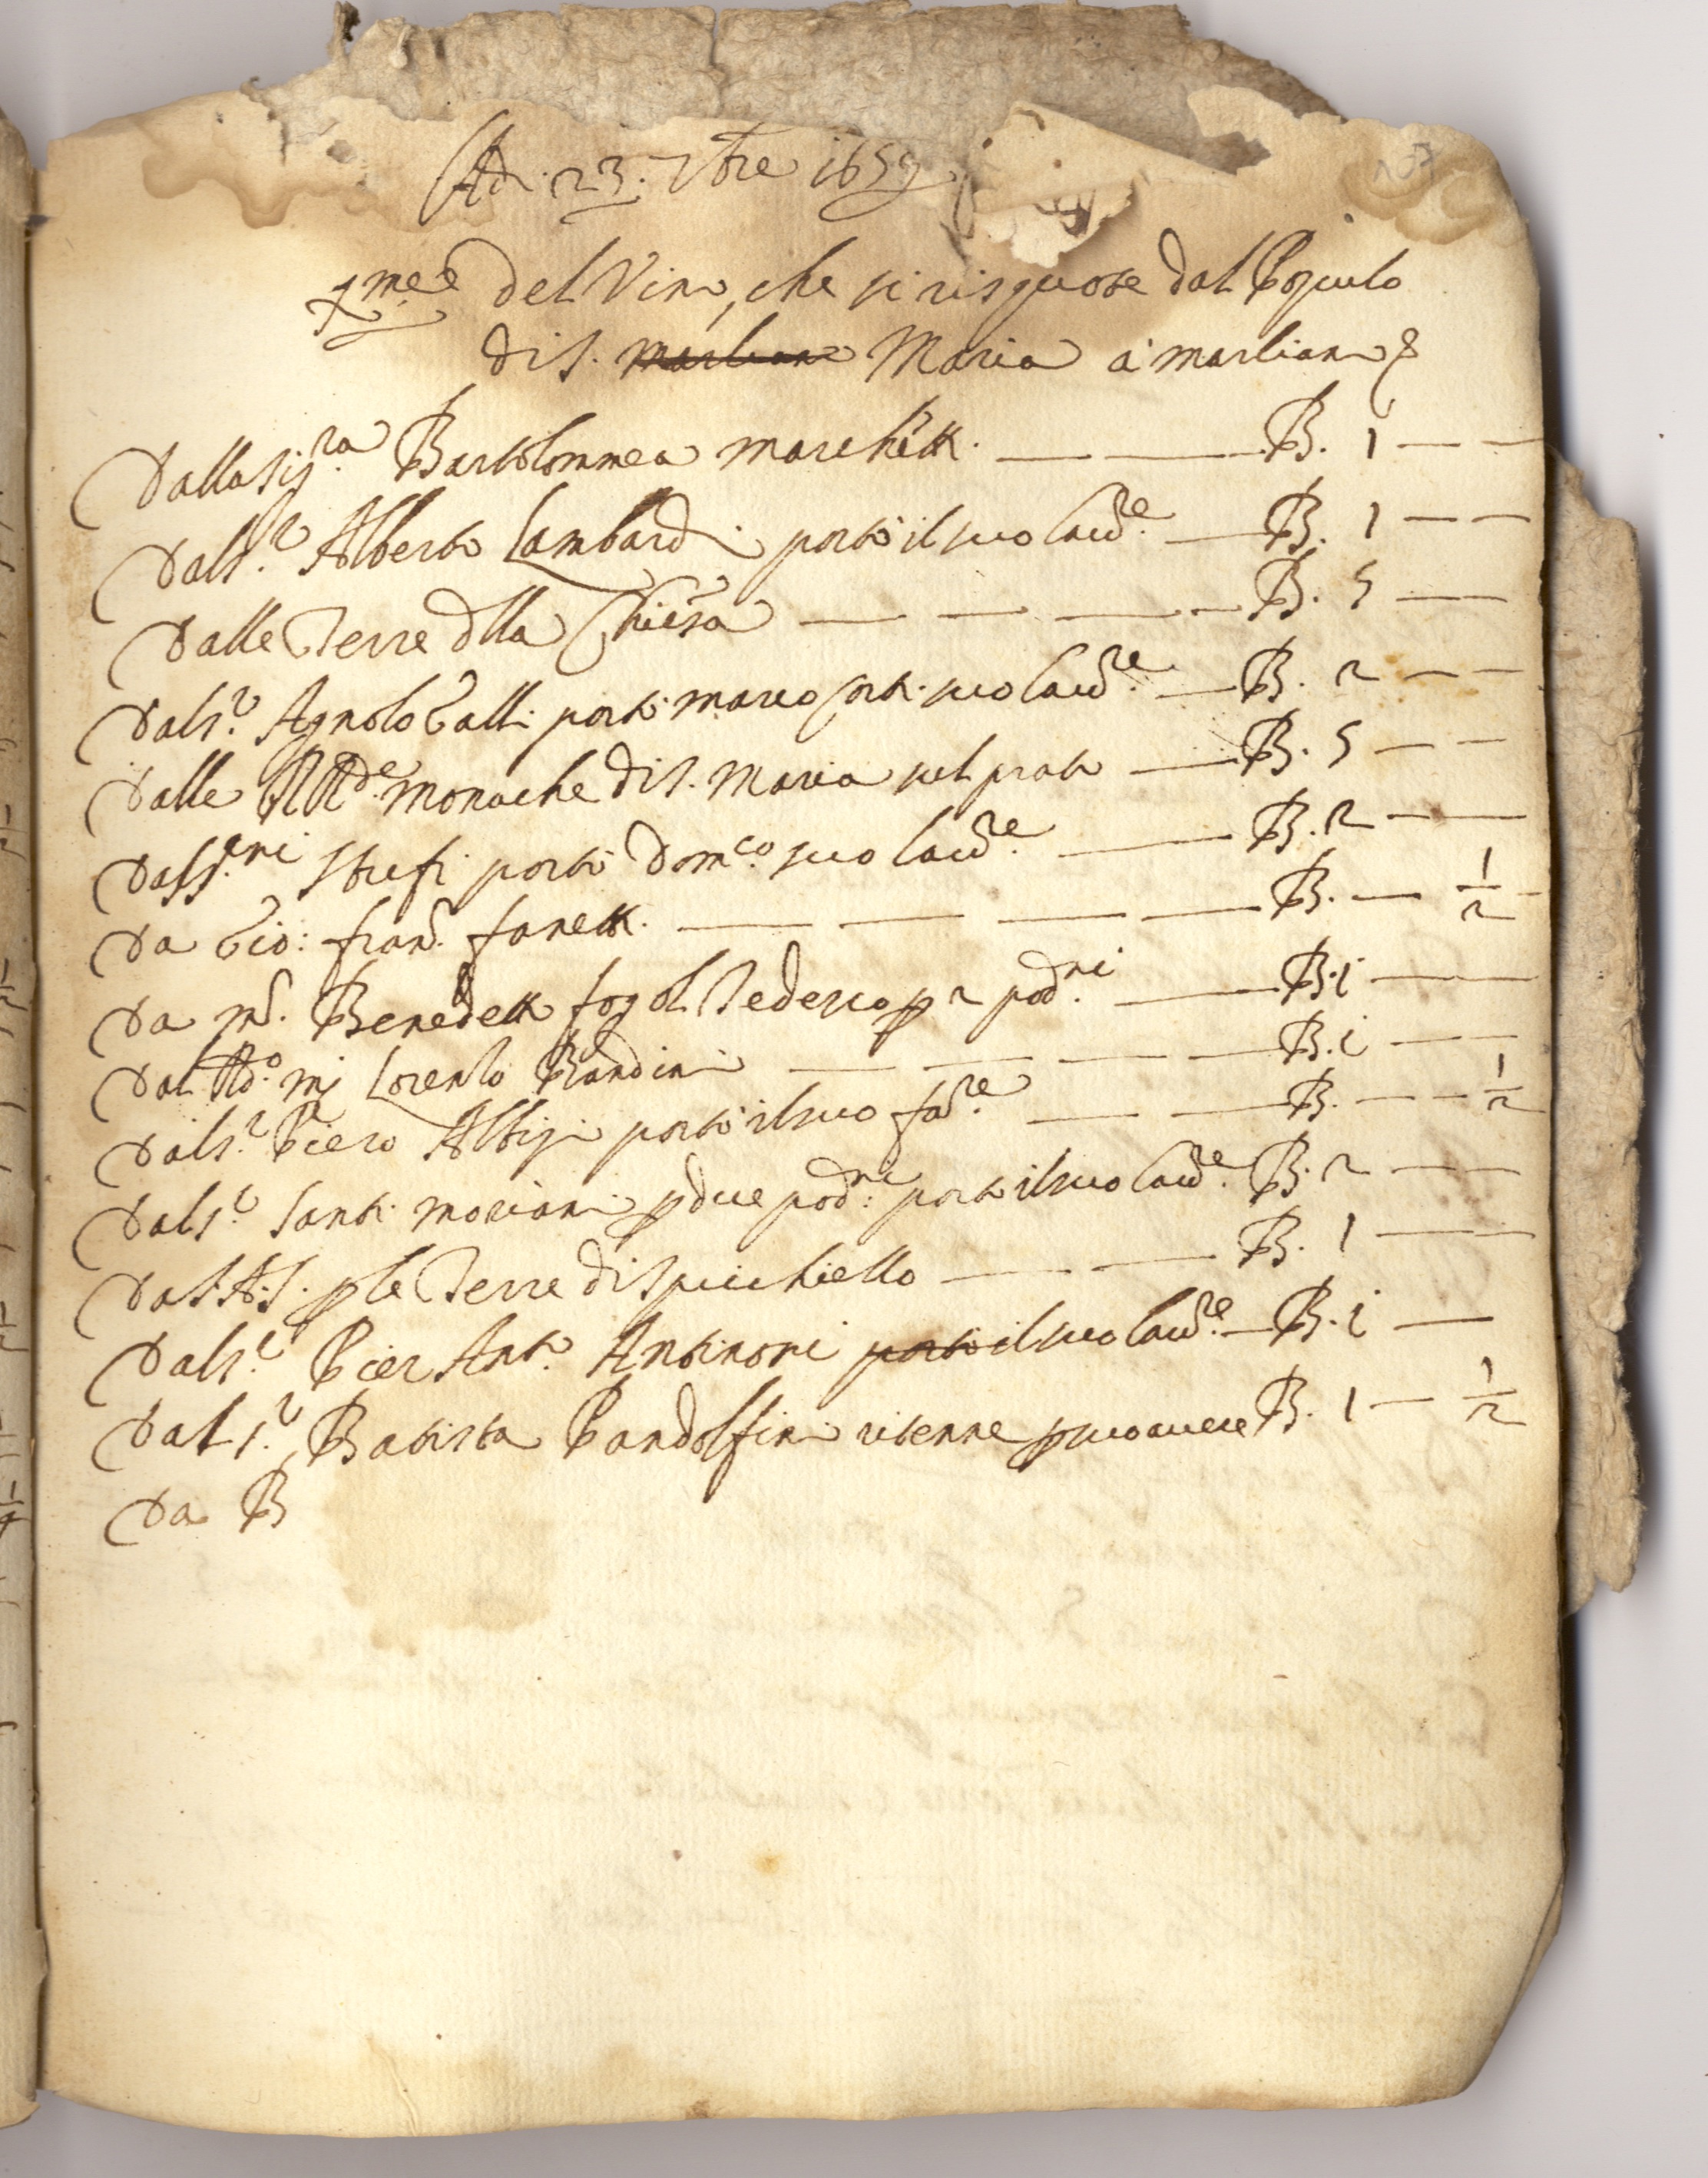 Adi 23. 7bre 1659
Xme del Vino, che si risquote dal Popiulo
di S. marliano Maria a marliano
Dalla Sig.ra Bartolommea marchetti. B. 1
Dal S.r Alberto Lambardi portò il suo lavd.re B. 1
Dalle Terre dlla Chiesa B. 5
Dal S.r Agnolo Galli portò marco suo lavd.re B. 2
Dalle RRde. Monache di S. Maria sul prato B. 5
Da SS.ri Stufi portò Dom.co suo lavd.re B. 2
Da Gio: fran. fanetti. B. 1/2
Da m. Benedetto Tedesco p 2 pod.ri B. i
Dal Rdo. mj Lorenzo Bandini B. i
Dal S.r Piero Albizi portò il suo fa.re B. 1/2
Dal S.r Santi moriani p due pod.ri portò il suo lavd.re B. 2
Da S.A.S. p le Terre di Spicchiello B. 1
Dal S.r Pier Ant.o Antinori portò il suo lavd.re B. i
Dal S.r Batista Pandolfini ritenne p suo avere B. 1 1/2
Da B